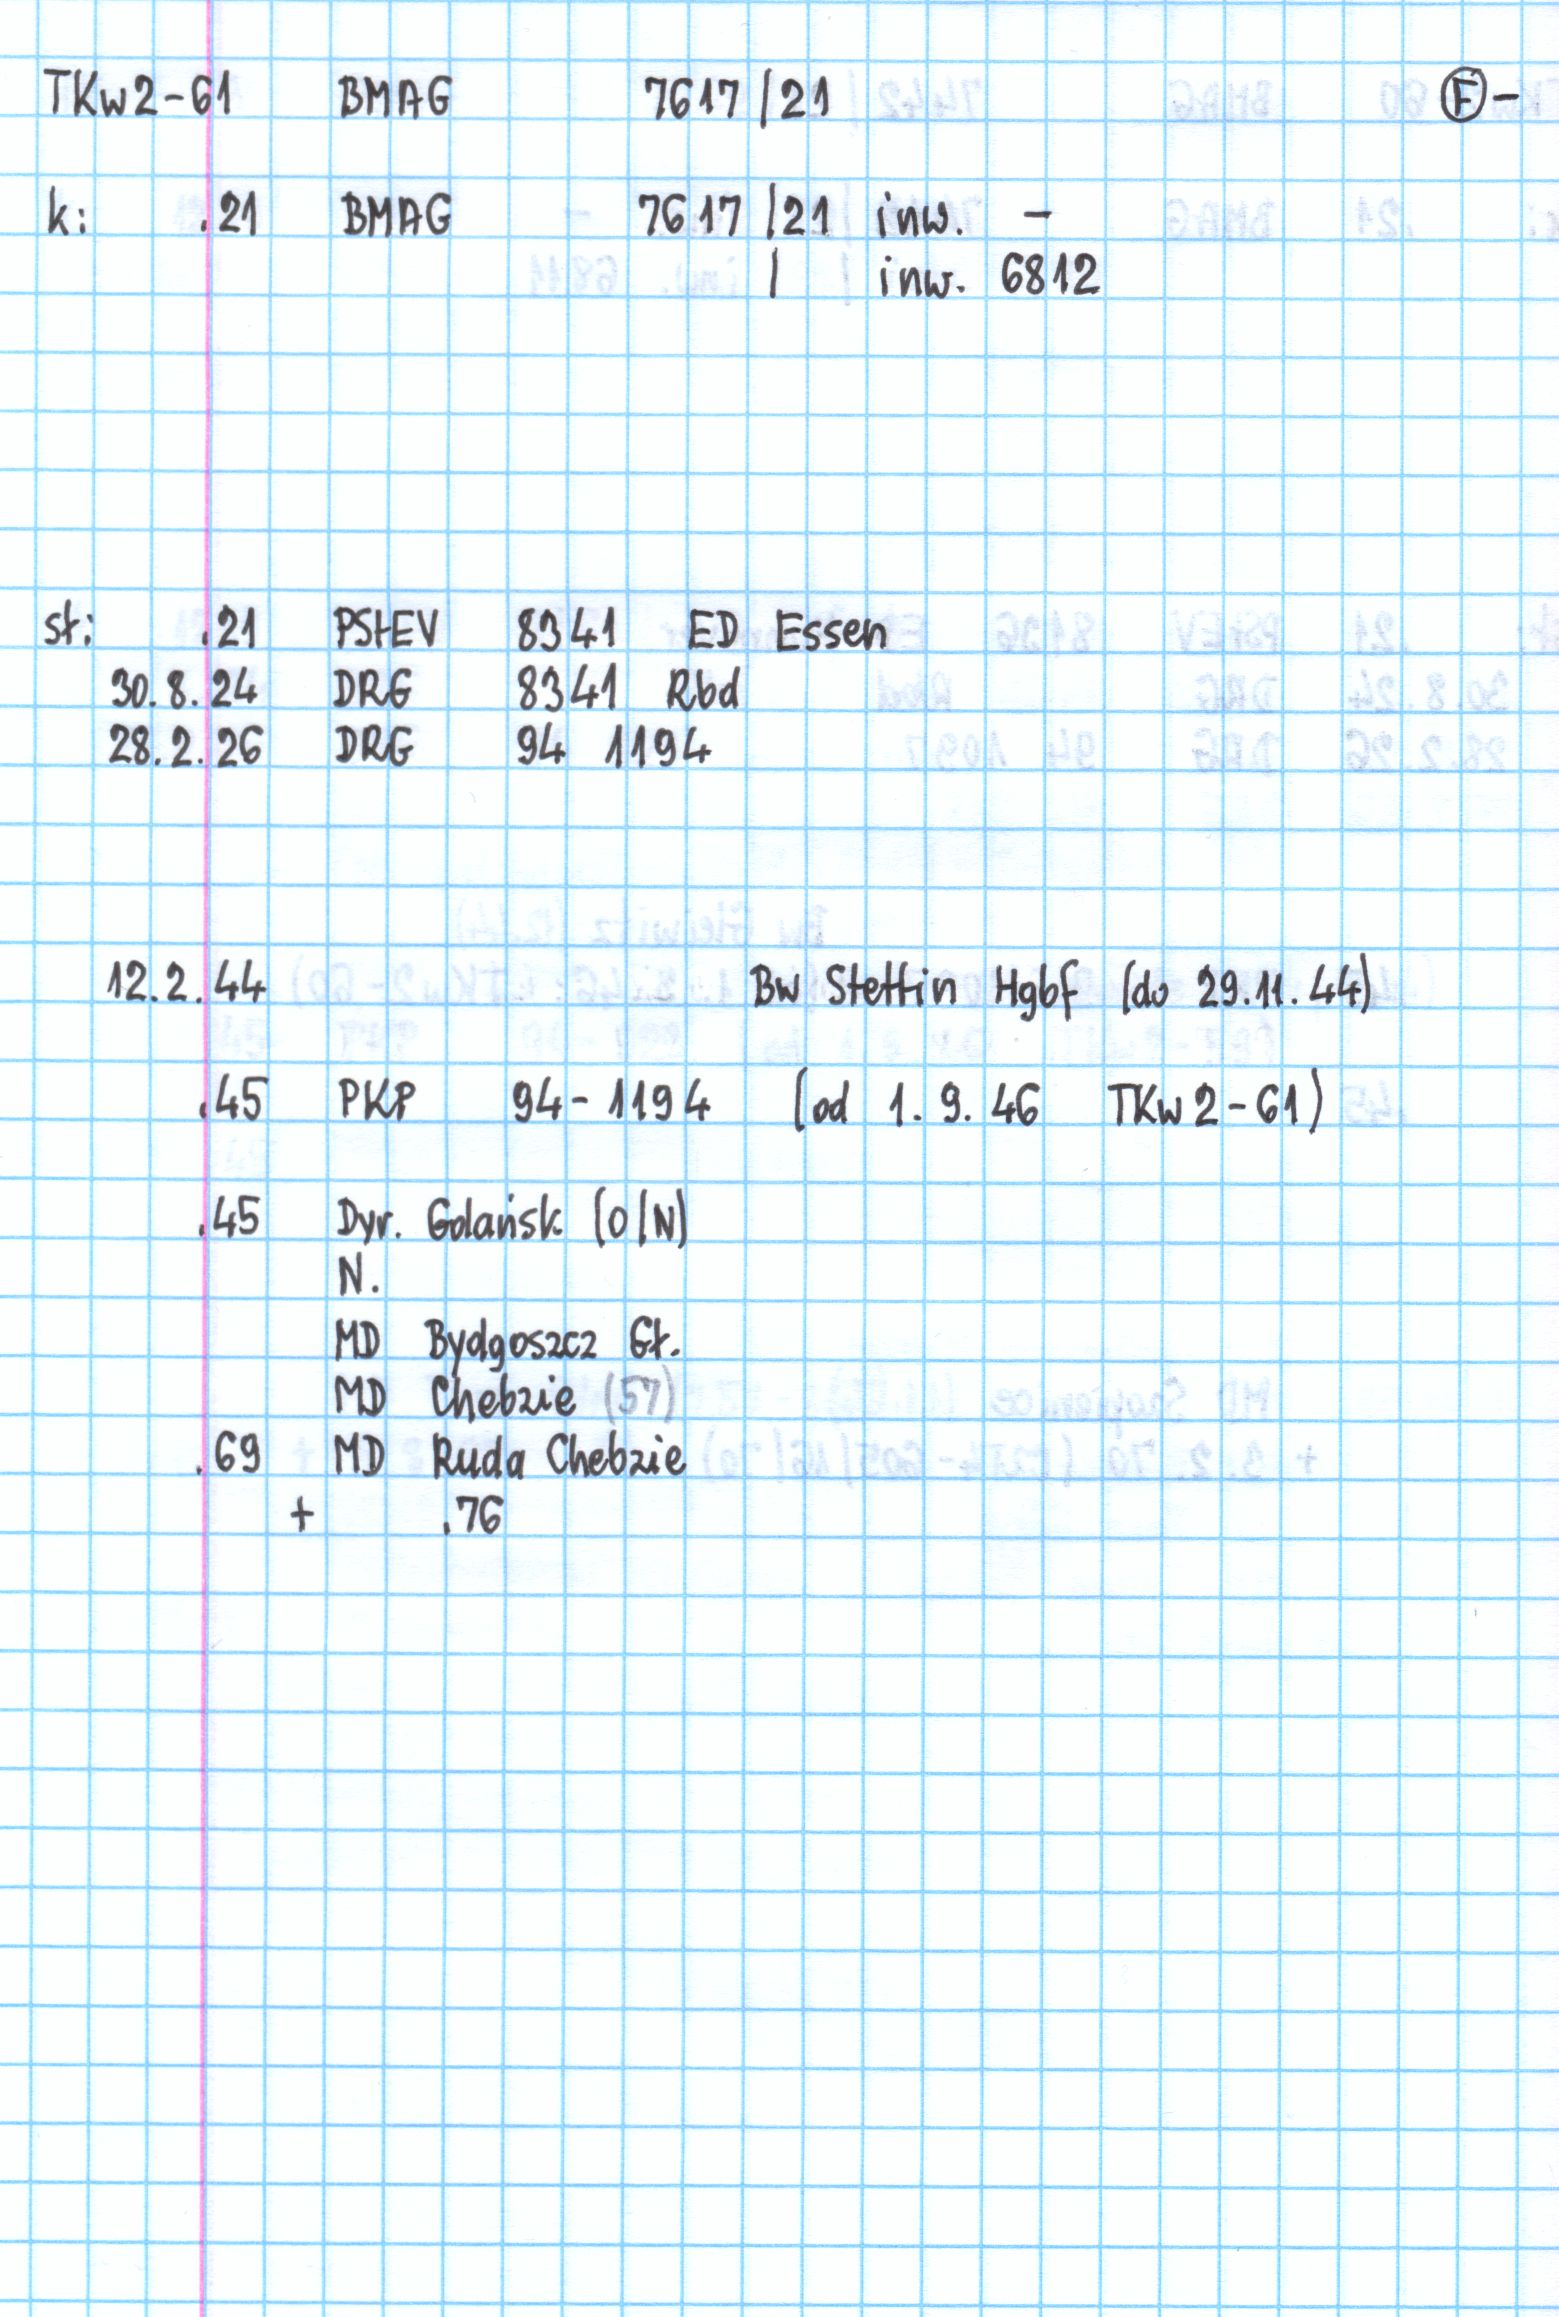 TKw2-61 BMAG 7617/21 F-
k: .21 BMAG 7617/21 inw. -
/ inw. 6812
st: .21 PStEV 8341 ED Essen
30.8.24 DRG 8341 Rbd
28.2.26 DRG 94 1194
12.2.44 Bw Stettin Hgbf (do 29.11.44)
.45 PKP 94-1194 (od 1.9.46 TKw2-61)
.45 Dyr. Gdańsk (O/N)
N.
MD Bydgoszcz Gł.
MD Chebzie (57)
.69 MD Ruda Chebzie
+ .76